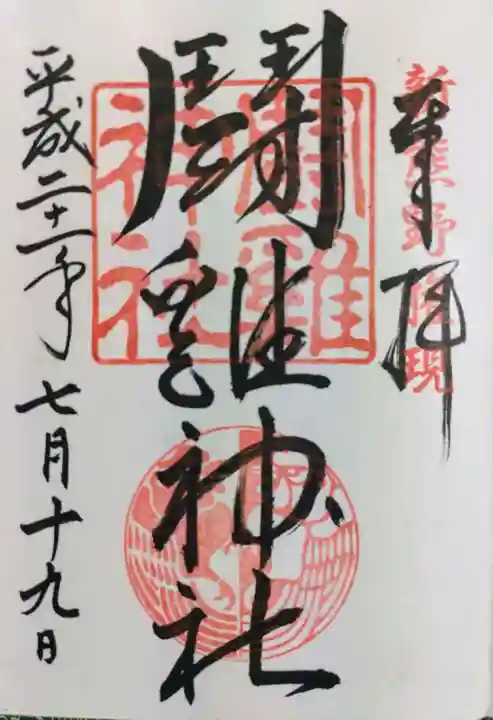 奉拝
新熊野権現
鬪雞神社
鬪雞神社
平成二十一年七月十九日